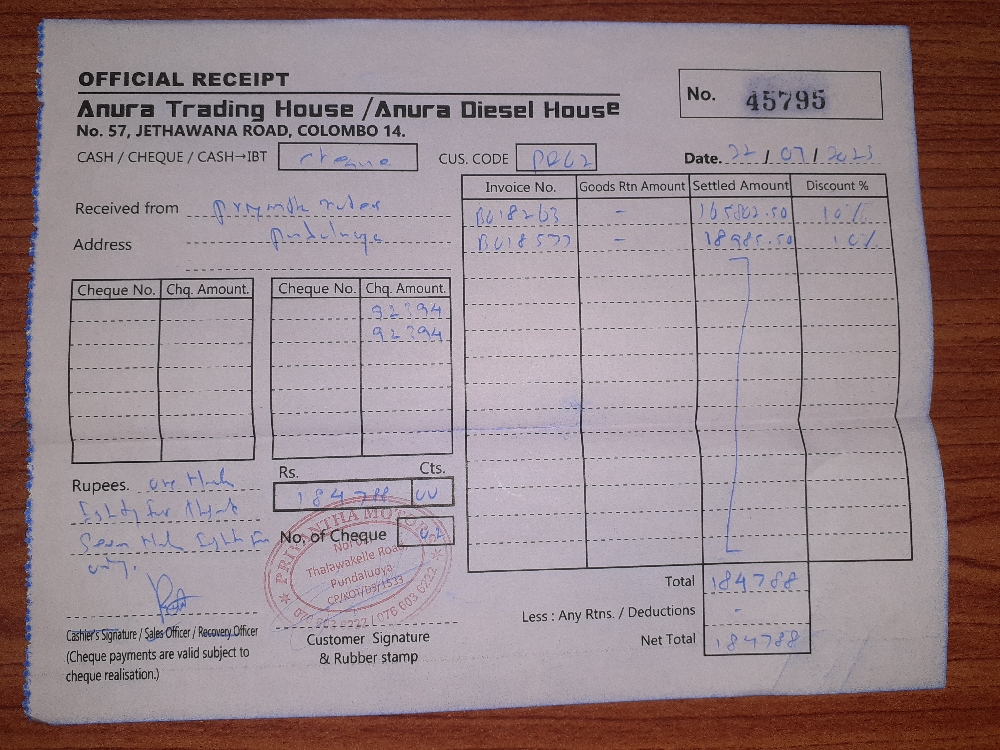 OFFICIAL RECEIPT
Anura Trading House / Anura Diesel House
No. 57, JETHAWANA ROAD, COLOMBO 14.
No. 45795
CASH / CHEQUE / CASH→IBT cheque CUS. CODE
Date. 22 / 07 / 2023
Invoice No. Goods Rtn Amount Settled Amount Discount %
Received from
BU18263 - 165802.50 10%
Address Pundaluya
BU18577 - 18985.50 10%
Cheque No. Chq. Amount. Cheque No. Chq. Amount.
92394
92394
Rupees.
Rs. Cts.
184788 00
No. of Cheque 02
PRIYANTHA MOTORS
Thalawakelle Road
Pundaluoya
CP/KOT/DS/1533
076 603 6222
Total 184788
Less : Any Rtns. / Deductions -
Net Total 184788
Cashier's Signature / Sales Officer / Recovery Officer
(Cheque payments are valid subject to
cheque realisation.)
Customer Signature
& Rubber stamp